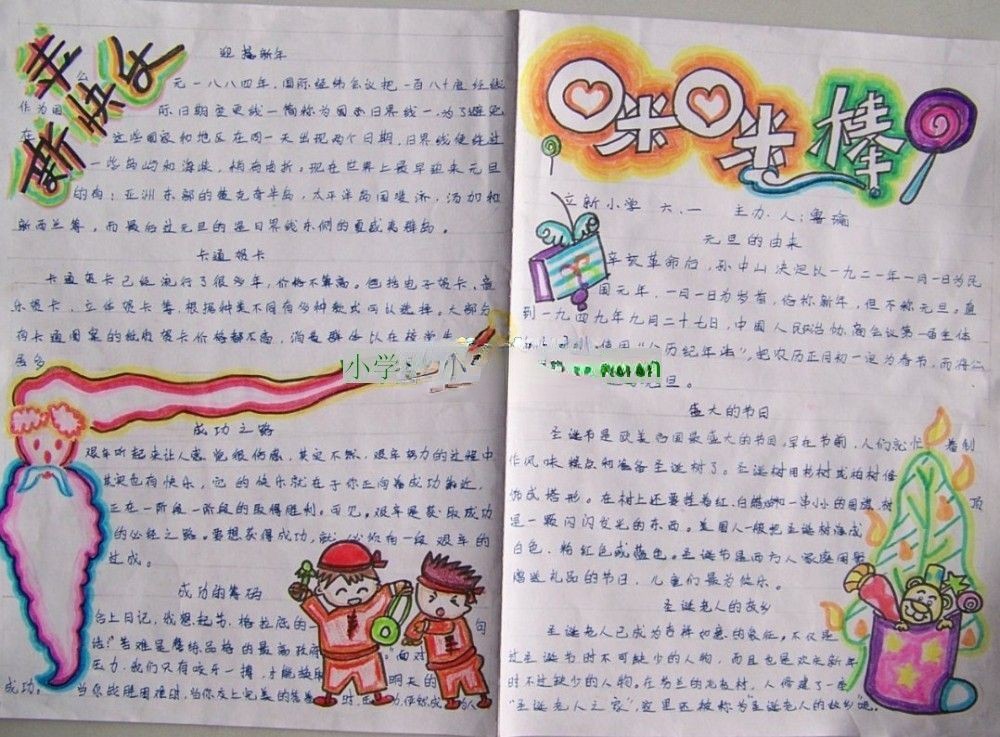 新年快乐
迎接新年
元一八八四年，国际经纬会议把一百八十度经线
作为国际日期变更线一简称为国际日界线一，为了避免
在这些国家和地区在同一天出现两个日期，日界线便绕过
一些岛屿和海峡，稍有曲折。现在世界上最早迎来元旦
的有：亚洲东部的楚克奇半岛，太平洋岛国斐济，汤加和
新西兰等，而最后过元旦的是日界线东侧的夏威夷群岛。
卡通贺卡
卡通贺卡已经流行了很多年，价格不算高。包括电子贺卡、音
乐贺卡、立体贺卡等，根据种类不同有多种款式可以选择。大部分
的卡通图案的纸质贺卡价格都不高，消费群体以在校学生
居多
小学
小
成功之路
艰辛听起来让人感觉很伤感，其实不断，艰辛努力的过程中
其实也有快乐，它的快乐就在于你正向着成功靠近，
正在一阶段一阶段的取得胜利。可见，艰辛是获取成功
的必经之路。要想获得成功，就必须有一段艰辛的
过成。
成功的筹码
合上日记，我想起苏格拉底的一句
话："苦难是磨练品格的最高政府
压力，我们只有咬牙一搏，才能
明天的
成功。当你战胜困难时，当你
咪咪棒
立新小学 六.一 主办人：鲁瑜
元旦的由来
辛亥革命后，孙中山决定以一九二一年一月一日为民
国元年，一月一日为岁首，俗称新年，但不称元旦。直
到一九四九年九月二十七日，中国人民政治协商会议第一届全体
使用"公历纪年法"，把农历正月初一定为春节，而将公
元旦。
盛大的节日
圣诞节是欧美各国最盛大的节日，早在节前，人们就忙着制
作风味糕点和准备圣诞树了。圣诞树用杉树或柏树修
饰成塔形。在树上还要挂着红、白蜡烛和一串小的国旗，树顶
是一颗闪闪发光的东西。美国人一般把圣诞树涂成
白色、粉红色或蓝色。圣诞节是西方人家庭团聚
赠送礼品的节日，儿童们最为快乐。
圣诞老人的故乡
圣诞老人已成为吉祥如意的象征。不仅是
过圣诞节时不可缺少的人物，而且也是欢庆新年
时不过缺少的人物。在芬兰的 人修建了一座
"圣诞老人之家"，这里还被称为圣诞老人的故乡呢。